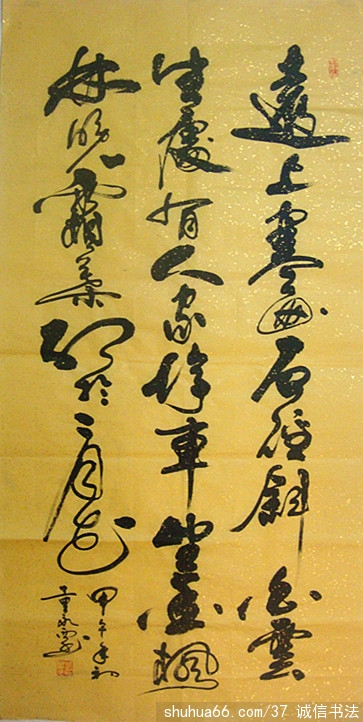 遠上寒山石徑斜白雲
生處有人家停車坐愛楓
林晚霜葉紅於二月花
甲午年初
shuhua66.com/37 诚信书法